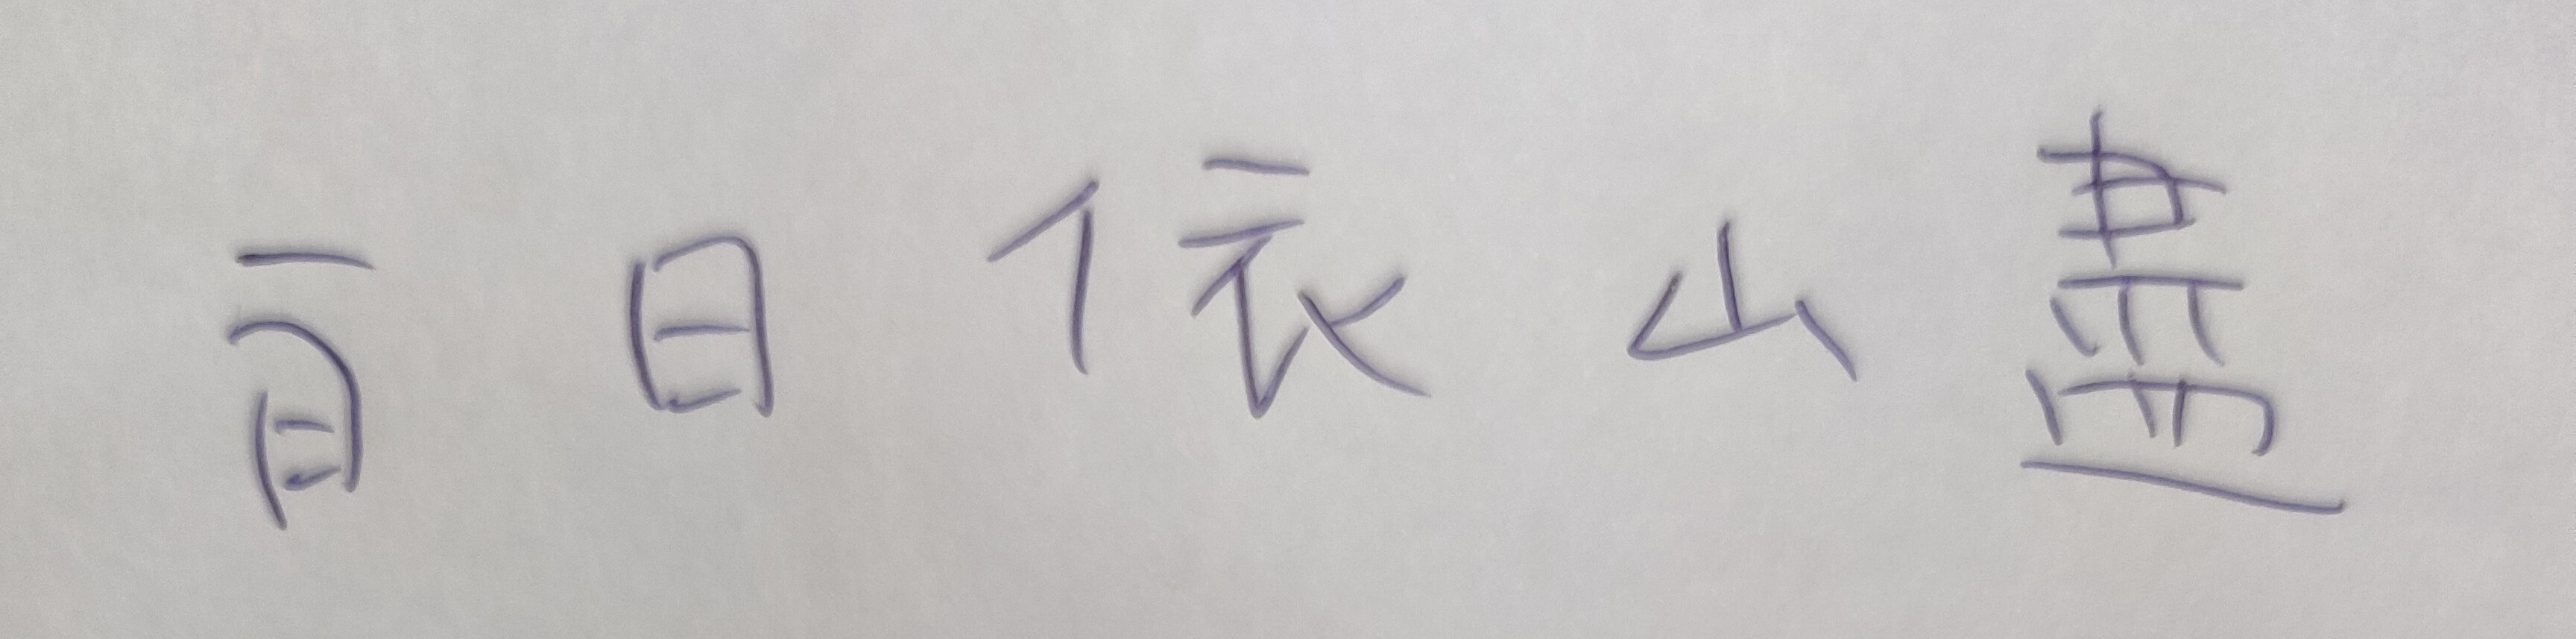 百日依山盡